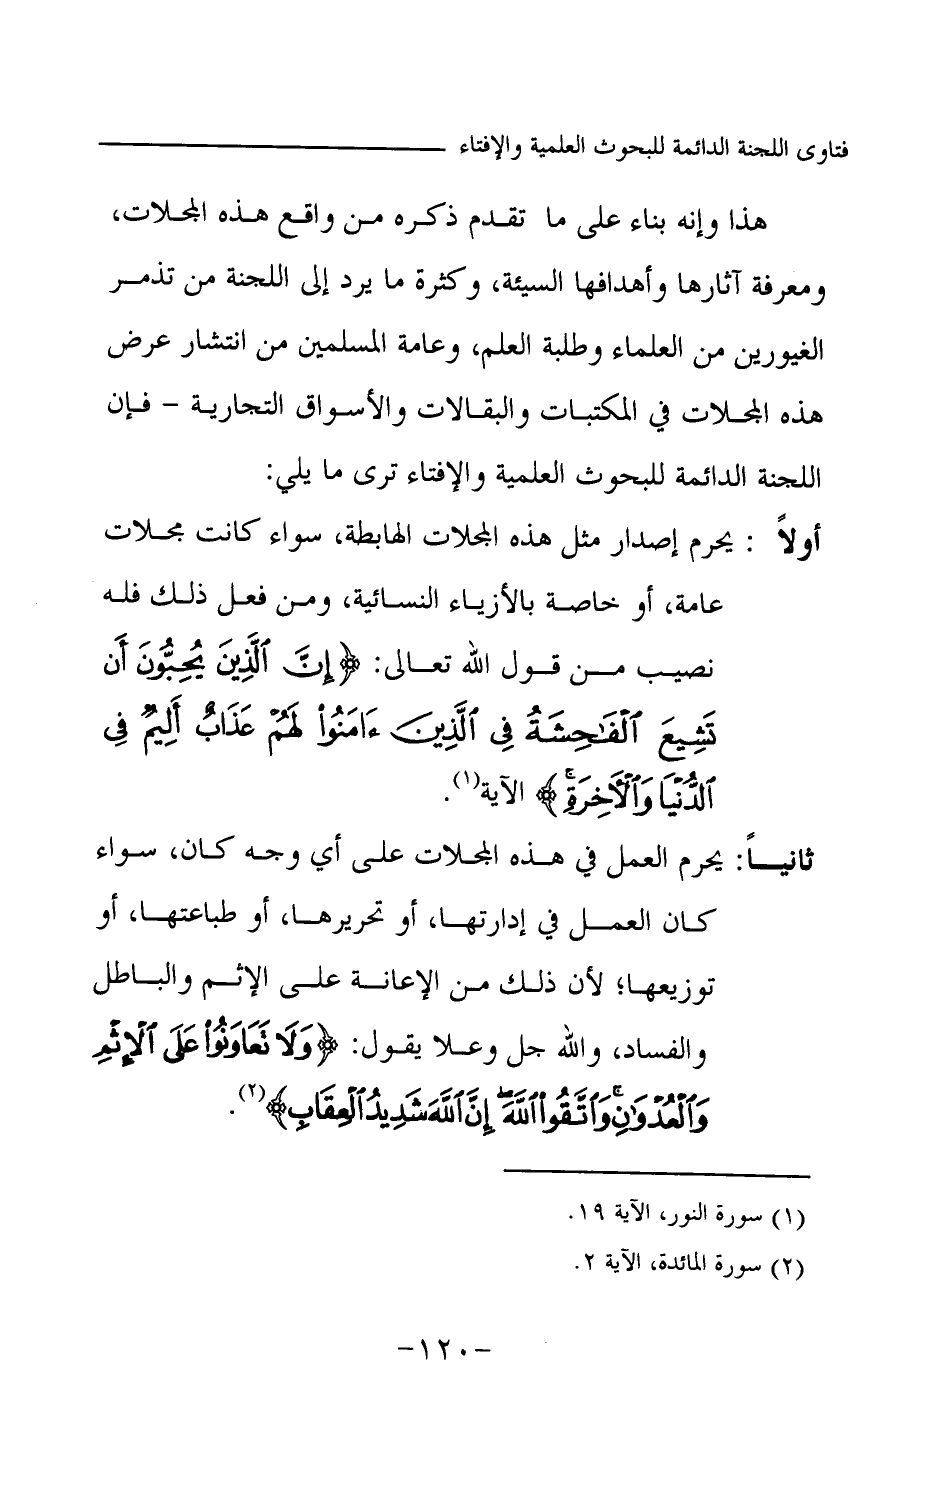 فتاوى اللجنة الدائمة للبحوث العلمية والإفتاء
هذا وإنه بناء على ما تقدم ذكره من واقع هذه المجلات،
ومعرفة آثارها وأهدافها السيئة، وكثرة ما يرد إلى اللجنة من تذمر
الغيورين من العلماء وطلبة العلم، وعامة المسلمين من انتشار عرض
هذه المجلات في المكتبات والبقالات والأسواق التجارية – فإن
اللجنة الدائمة للبحوث العلمية والإفتاء ترى ما يلي:
أولاً : يحرم إصدار مثل هذه المجلات الهابطة، سواء كانت مجلات
عامة، أو خاصة بالأزياء النسائية، ومن فعل ذلك فله
نصيب من قول الله تعالى: ﴿إِنَّ ٱلَّذِينَ يُحِبُّونَ أَن
تَشِيعَ ٱلْفَٰحِشَةُ فِى ٱلَّذِينَ ءَامَنُوا۟ لَهُمْ عَذَابٌ أَلِيمٌ فِى
ٱلدُّنْيَا وَٱلْءَاخِرَةِ ۚ﴾ الآية(١).
ثانيـاً: يحرم العمل في هذه المجلات على أي وجه كان، سواء
كان العمل في إدارتها، أو تحريرها، أو طباعتها، أو
توزيعها؛ لأن ذلك من الإعانة على الإثم والباطل
والفساد، والله جل وعلا يقول: ﴿وَلَا تَعَاوَنُوا۟ عَلَى ٱلْإِثْمِ
وَٱلْعُدْوَٰنِ ۚ وَٱتَّقُوا۟ ٱللَّهَ ۖ إِنَّ ٱللَّهَ شَدِيدُ ٱلْعِقَابِ﴾(٢).
(١) سورة النور، الآية ١٩.
(٢) سورة المائدة، الآية ٢.
-١٢٠-